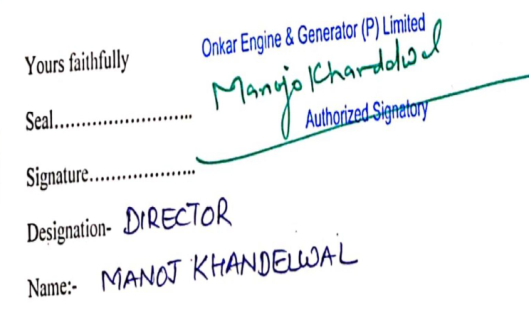 Yours faithfully
Onkar Engine & Generator (P) Limited
Manoj Khandelwal
Seal..........................
Authorized Signatory
Signature....................
Designation- DIRECTOR
Name:- MANOJ KHANDELWAL